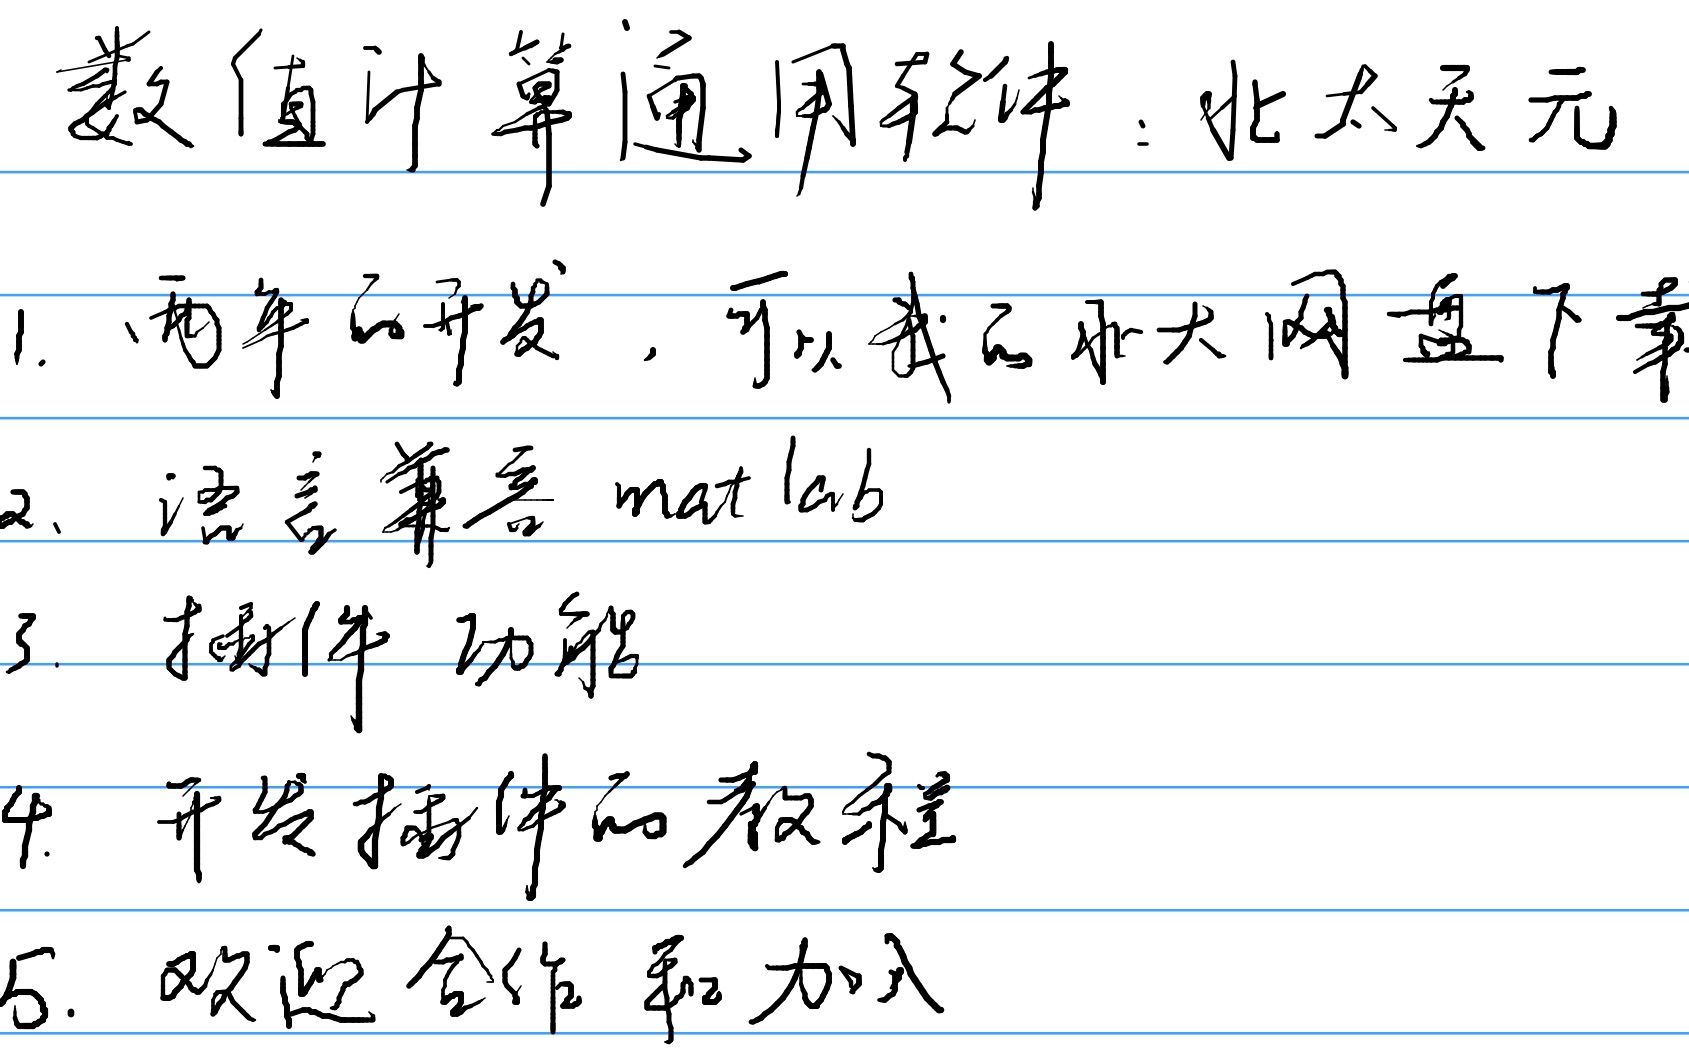 数值计算通用软件：北太天元
1. 两年的开发，可以我的北大网盘下载
2、语言兼容 matlab
3. 插件功能
4. 开发插件的教程
5. 欢迎合作和加入